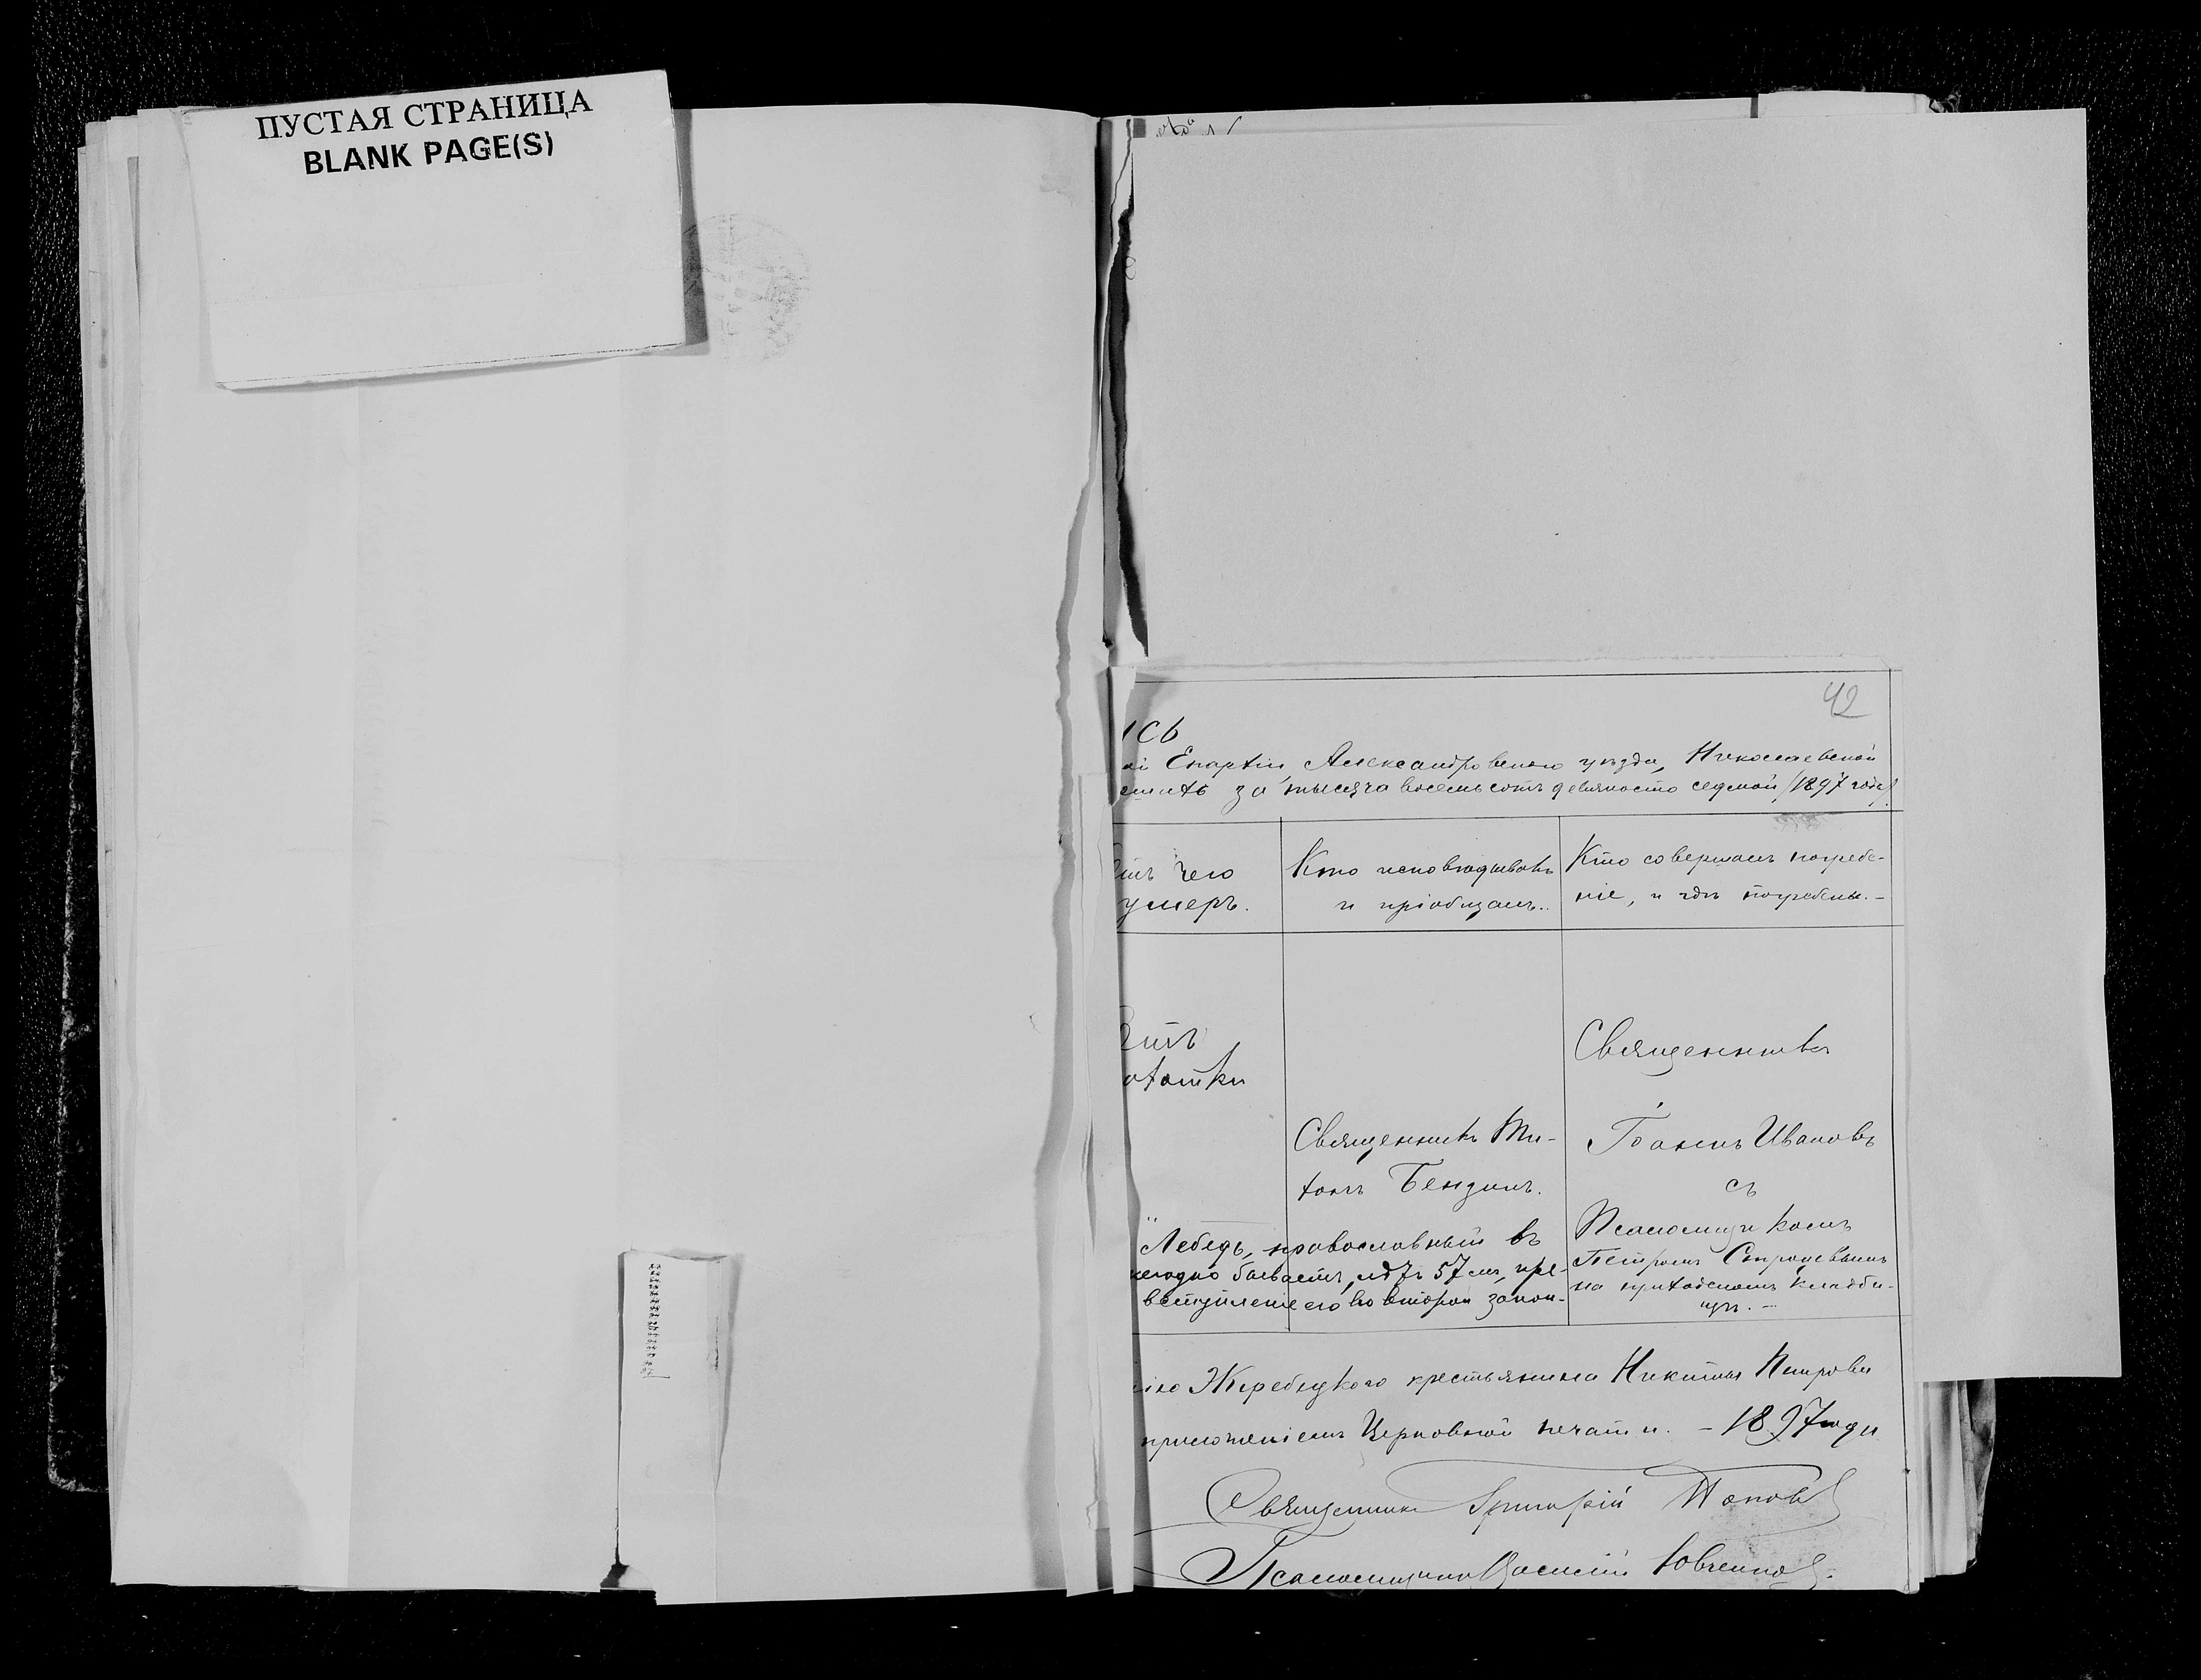 ПУСТАЯ СТРАНИЦА
BLANK PAGE(S)
42
ись
Епархіи, Александровскаго уѣзда, Николаевской
за тысяча восемьсотъ девяносто седмой /1897 годъ/
чего
умеръ.
Кто исповѣдывалъ
и пріобщалъ.
Кто совершалъ погребе-
ніе, и гдѣ погребены. -
отъ
ахотки
Священникъ Ти-
хонъ Бендинъ.
Священникъ
Іоаннъ Ивановъ
съ
Псаломщикомъ
Петромъ
на приходскомъ кладби-
щѣ. -
Лебедь, православный въ
бываетъ, 57
вступленіе его во второй закон-
Жеребецкаго крестьянина Никиты Петрова
приложеніемъ Церковной печати. - 1897 года
Священникъ Григорій Поповъ
Псаломщикъ Василій Ювченко.